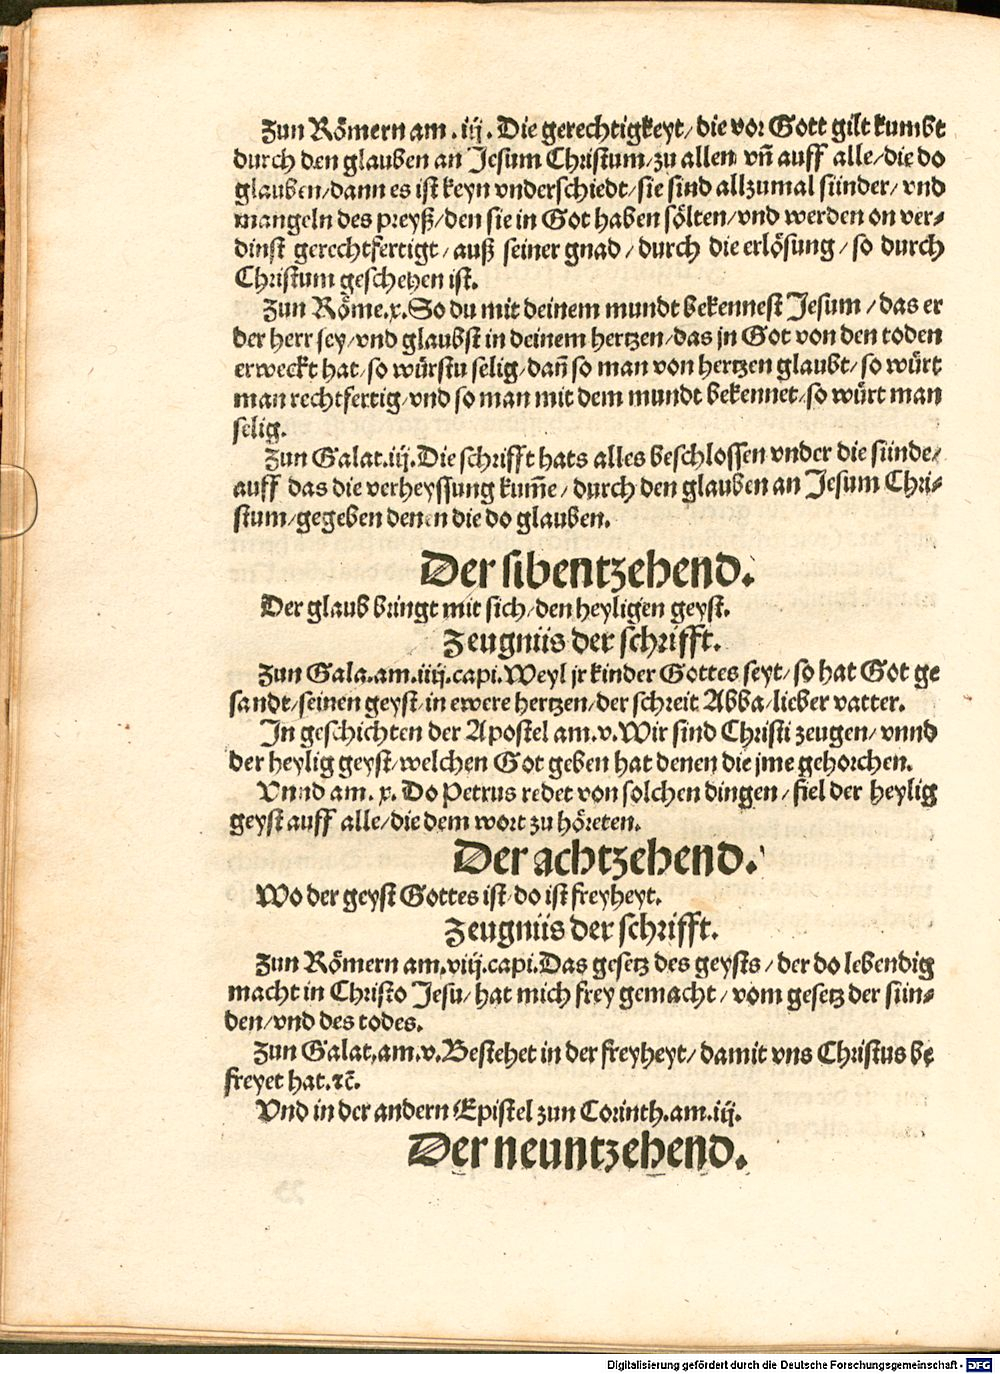 Zun Römern am .iij. Die gerechtigkeyt/ die vor Gott gilt kumbt
durch den glauben an Jesum Christum/ zu allen vñ auff alle/ die do
glauben/ dann es ist keyn vnderschiedt/ sie sind allzumal sünder/ vnd
mangeln des preyß/ den sie in Got haben sölten/ vnd werden on ver-
dinst gerechtfertigt/ auß seiner gnad/ durch die erlösung/ so durch
Christum geschehen ist.
Zun Röme.x. So du mit deinem mundt bekennest Jesum/ das er
der herr sey/ vnd glaubst in deinem hertzen/ das jn Got von den toden
erweckt hat/ so würstu selig/ dañ so man von hertzen glaubt/ so würt
man rechtfertig/ vnd so man mit dem mundt bekennet/ so würt man
selig.
Zun Galat.iij. Die schrifft hats alles beschlossen vnder die sünde/
auff das die verheyssung kum̃e/ durch den glauben an Jesum Chri-
stum/ gegeben denen die do glauben.
Der sibentzehend.
Der glaub bringt mit sich/ den heyligen geyst.
Zeugnüs der schrifft.
Zun Gala.am.iiij.capi. Weyl jr kinder Gottes seyt/ so hat Got ge
sandt/ seinen geyst/ in ewere hertzen/ der schreit Abba/ lieber vatter.
In geschichten der Apostel am.v. Wir sind Christi zeugen/ vnnd
der heylig geyst/ welchen Got geben hat denen die jme gehorchen.
Vnnd am. x. Do Petrus redet von solchen dingen/ fiel der heylig
geyst auff alle/ die dem wort zu höreten.
Der achtzehend.
Wo der geyst Gottes ist/ do ist freyheyt.
Zeugnüs der schrifft.
Zun Römern am.viij.capi. Das gesetz des geysts/ der do lebendig
macht in Christo Jesu/ hat mich frey gemacht/ vom gesetz der sün-
den/ vnd des todes.
Zun Galat.am.v. Bestehet in der freyheyt/ damit vns Christus be
freyet hat.ꝛc̃.
Vnd in der andern Epistel zun Corinth.am.iij.
Der neuntzehend.
Digitalisierung gefördert durch die Deutsche Forschungsgemeinschaft - DFG